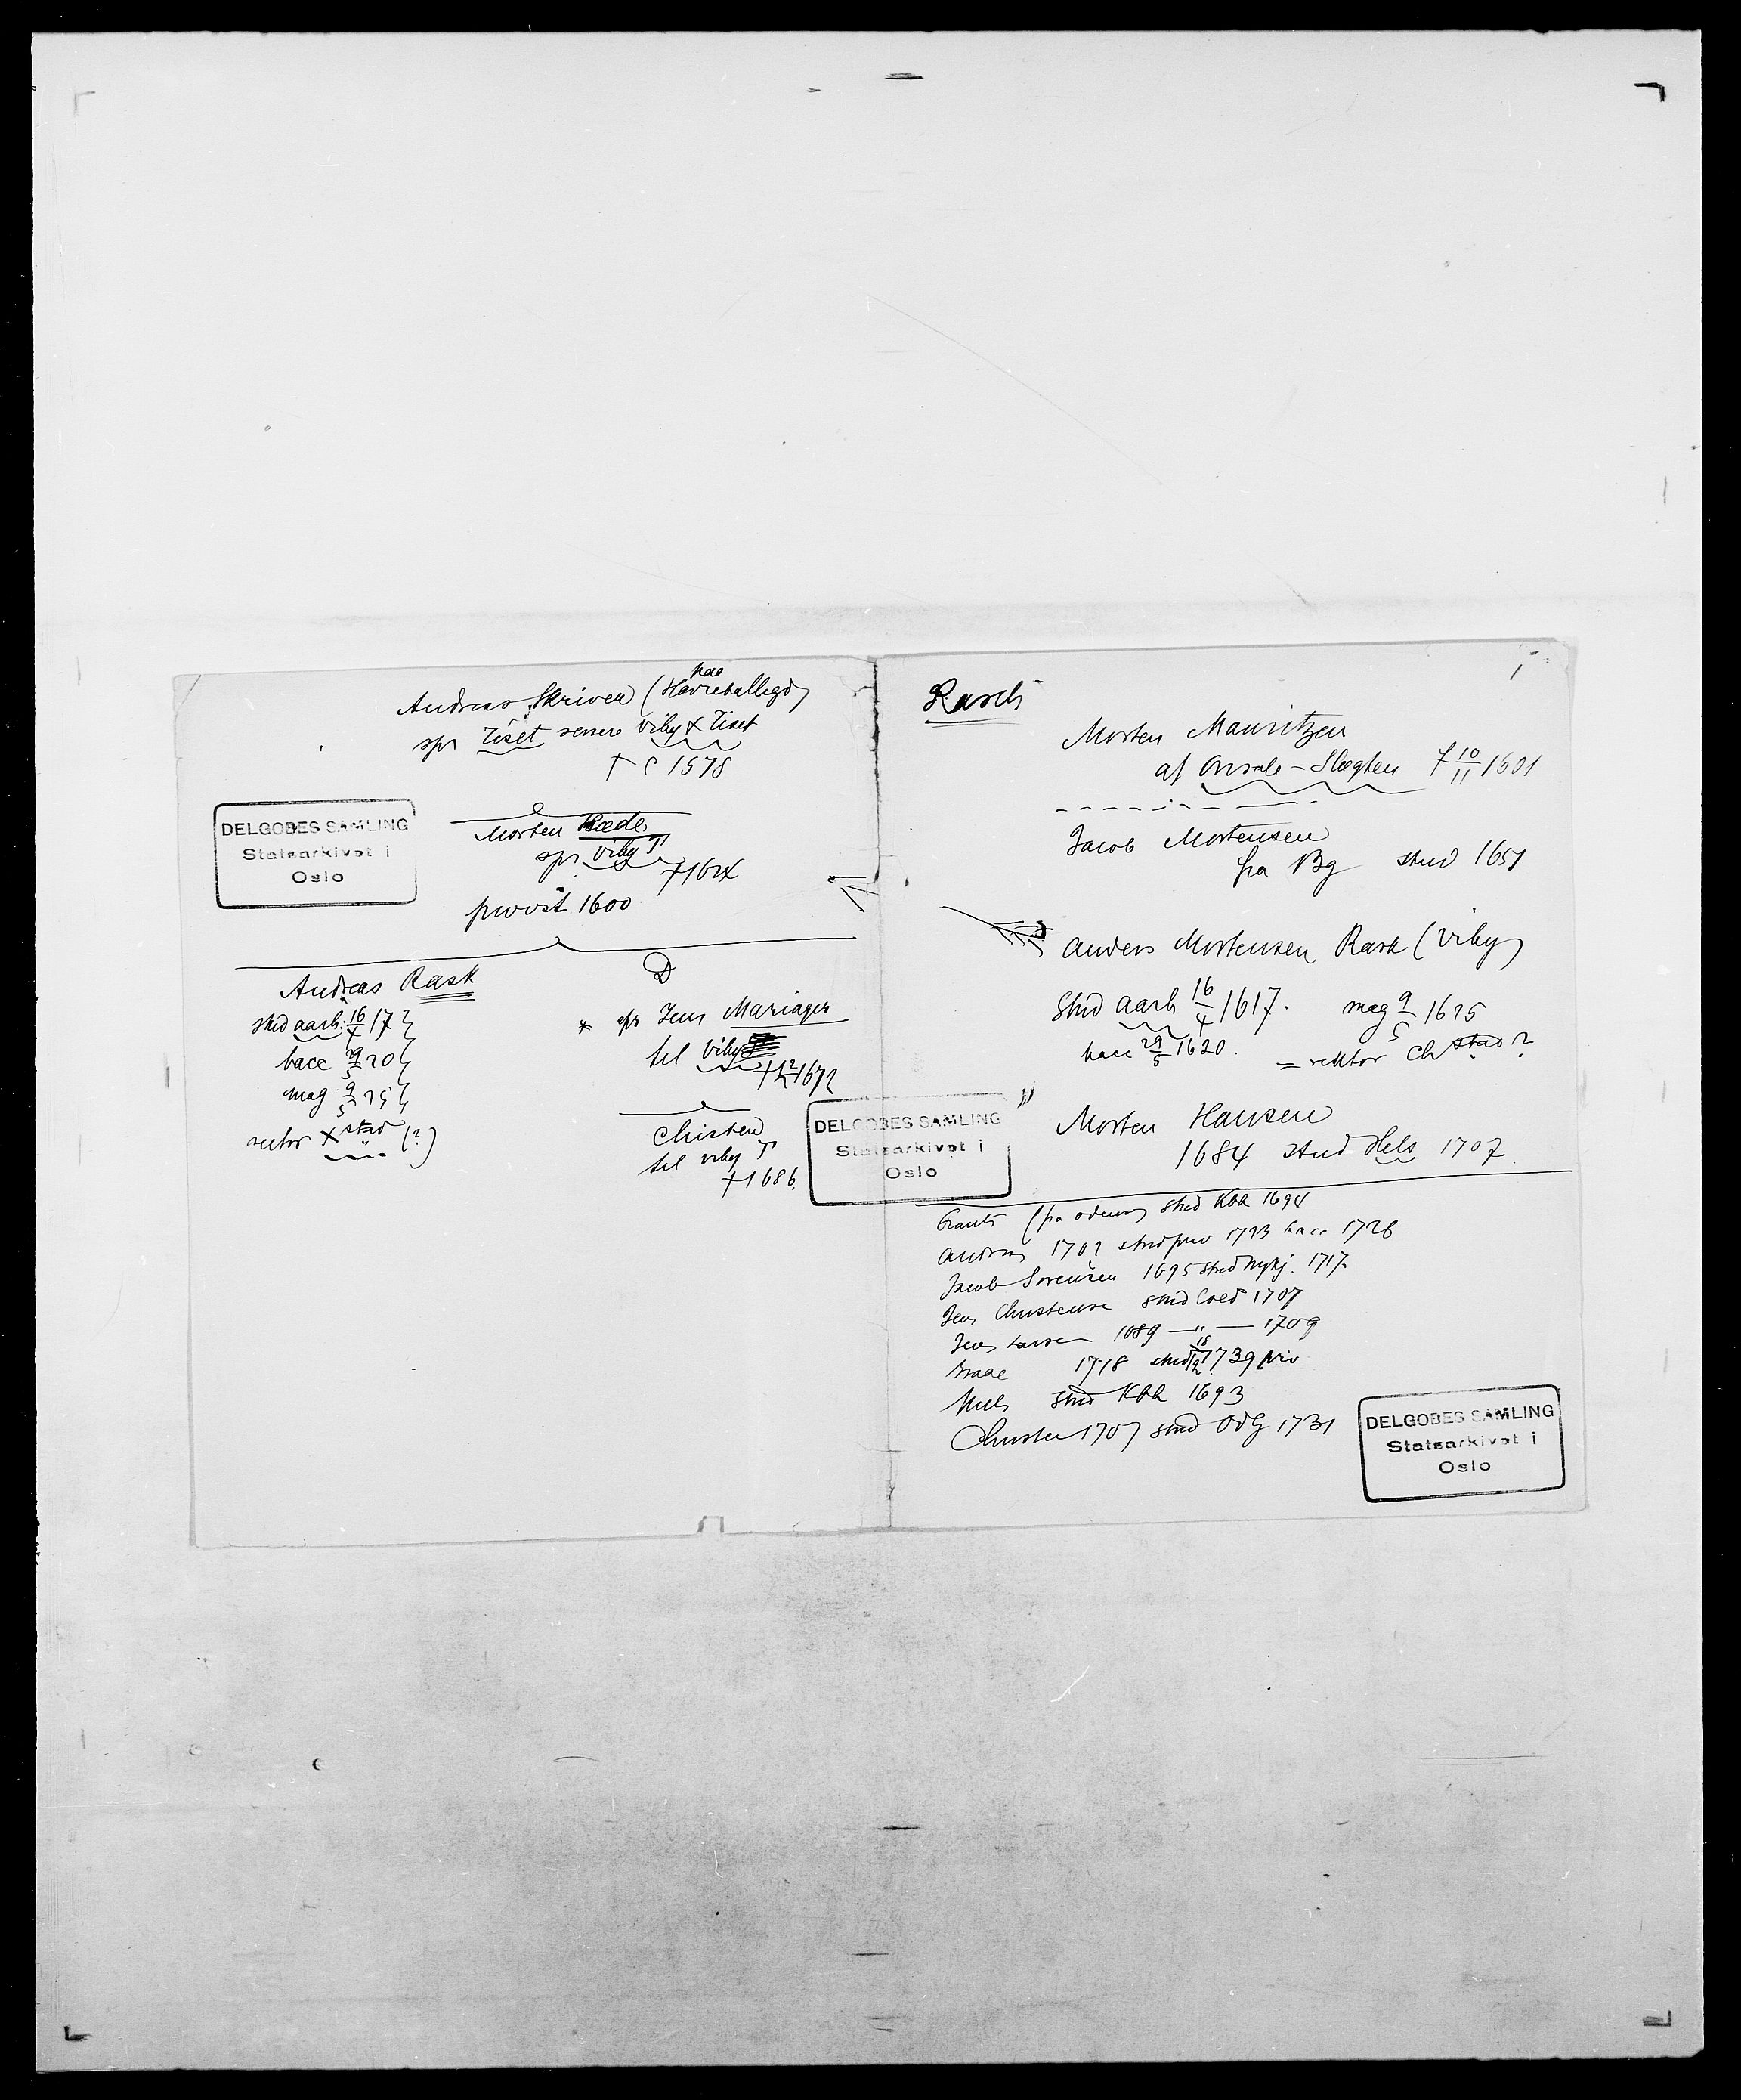 Andreas Skriver (
spr Tiset senere Viby & Tiset
† c 1578
DELGOBES SAMLING
Statsarkivet i
Oslo
Morten
spr Viby
† 1624
provst 1600
Andreas Rask
stud aarh. 16/4 17
bacc 29/5 20
mag 9/5 25
rector X stad (?)
D
* spr Jens Mariager
til Viby
1672
Christen
til Viby
† 1686.
DELGOBES SAMLING
Statsarkivet i
Oslo
Rasch
Morten Mauritzen
af Onsale-Slægten † 10/11 1601
Jacob Mortensen
fra Bg stud 1651
Anders Mortensen Rask (Viby)
Stud aarh 16/4 1617. mag 9/5 1625
bacc 29/5 1620. = rektor Ch stad ?
Morten Hansen
1684 stud Hels 1707.
Frants (fra Odense) stud Kbh 1698
Andreas 1702 stud priv 1723 bacc 1726
Jacob Sorensen 1695 stud Nykj. 1717.
Jens Christensen stud 1707
Jens Larsen 1689 — " — 1709
1718 stud 18/12 1739 priv
Niels stud Kbh 1693
Christen 1707 stud OdG 1731
DELGOBES SAMLING
Statsarkivet i
Oslo